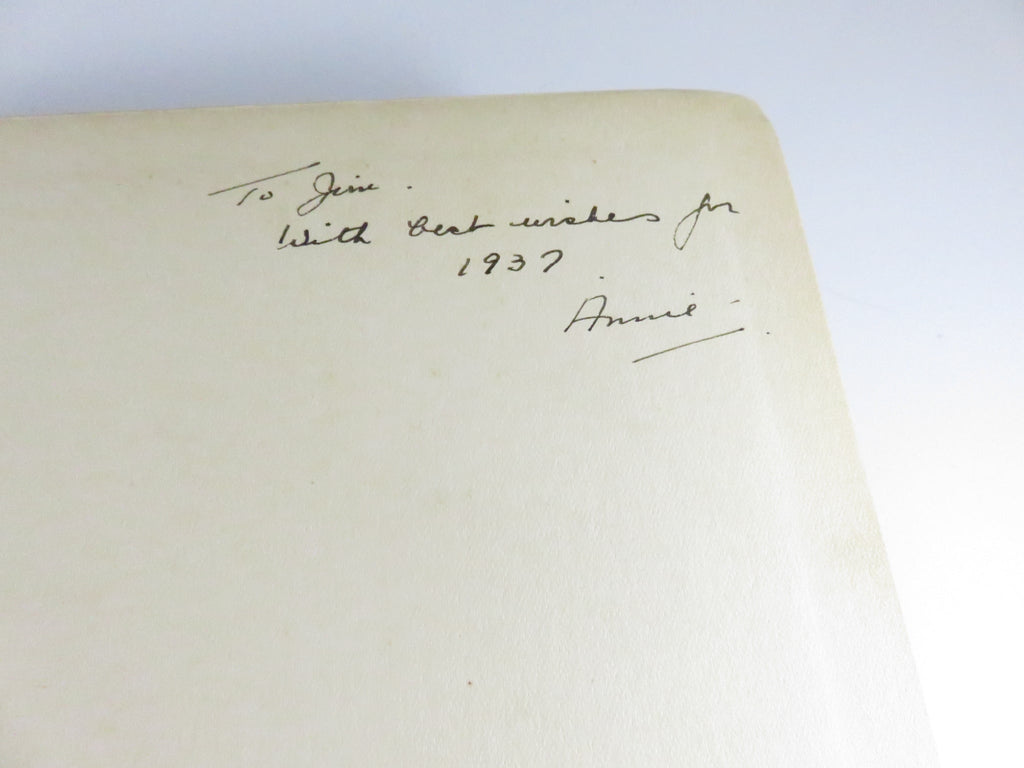 To Jim.
With best wishes for
1937
Annie